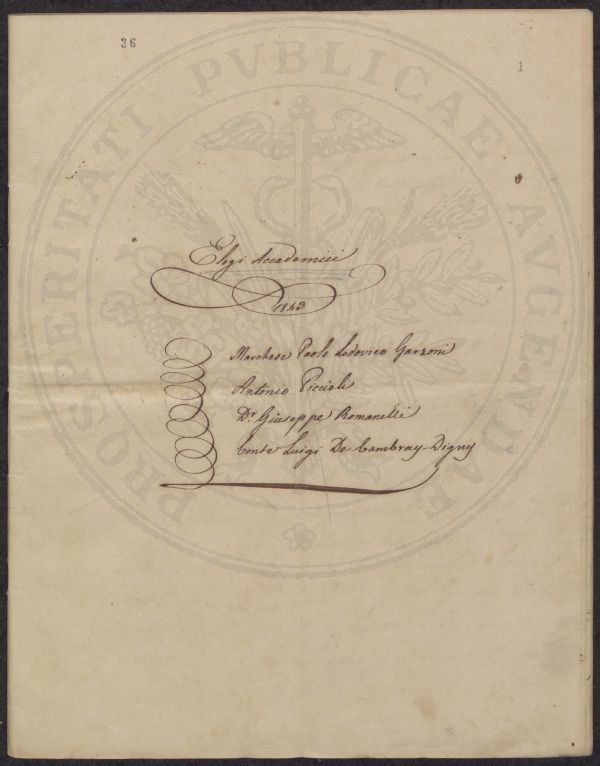 36
1
PROSPERITATI PVBLICAE AVGENDAE
Elogi Accademici
1843
Marchese Paolo Lodovico Garzoni
Antonio Piccioli
Dr Giuseppe Romanelli
Conte Luigi De Cambray-Digny